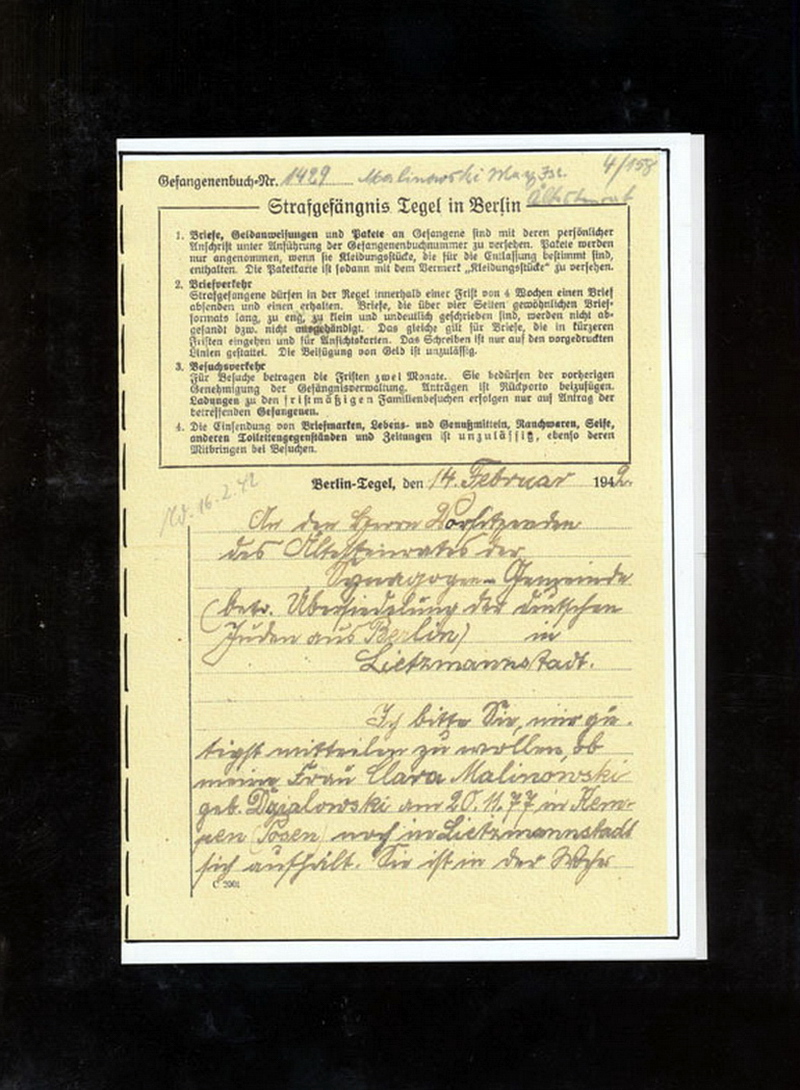 Gefangenenbuch-Nr. 1429 Malinowski Max Isr. 4/158
Ältestenrat
Strafgefängnis Tegel in Berlin
1. Briefe, Geldanweisungen und Pakete an Gefangene sind mit deren persönlicher
Anschrift unter Anführung der Gefangenenbuchnummer zu versehen. Pakete werden
nur angenommen, wenn sie Kleidungsstücke, die für die Entlassung bestimmt sind,
enthalten. Die Paketkarte ist sodann mit dem Vermerk „Kleidungsstücke" zu versehen.
2. Briefverkehr
Strafgefangene dürfen in der Regel innerhalb einer Frist von 4 Wochen einen Brief
absenden und einen erhalten. Briefe, die über vier Seiten gewöhnlichen Brief-
formats lang, zu eng, zu klein und undeutlich geschrieben sind, werden nicht ab-
gesandt bzw. nicht ausgehändigt. Das gleiche gilt für Briefe, die in kürzeren
Fristen eingehen und für Ansichtskarten. Das Schreiben ist nur auf den vorgedruckten
Linien gestattet. Die Beifügung von Geld ist unzulässig.
3. Besuchsverkehr
Für Besuche betragen die Fristen zwei Monate. Sie bedürfen der vorherigen
Genehmigung der Gefängnisverwaltung. Anträgen ist Rückporto beizufügen.
Ladungen zu den fristmäßigen Familienbesuchen erfolgen nur auf Antrag der
betreffenden Gefangenen.
4. Die Einsendung von Briefmarken, Lebens- und Genußmitteln, Rauchwaren, Seife,
anderen Toilettengegenständen und Zeitungen ist unzulässig, ebenso deren
Mitbringen bei Besuchen.
Berlin-Tegel, den 14. Februar 1942.
16.2.42
An den Herrn Vorsitzenden
des Ältestenrates der
Synagogen-Gemeinde
(betr. Übersiedelung der deutschen
Juden aus Berlin) in
Lietzmannstadt.
Ich bitte Sie, mir gü-
tigst mitteilen zu wollen, ob
meine Frau Clara Malinowski
geb. Dzialowski am 20.11.77 in Kem-
pen (Posen) noch in Lietzmannstadt
sich aufhält. Sie ist in der Woche
C 2001